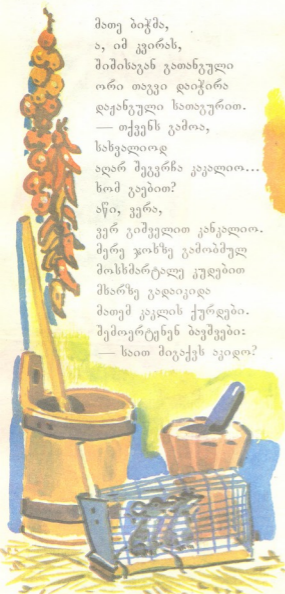 მათე ბიჭმა,
ა, იმ კვირას,
შიშისაგან გათანგული
ორი თაგვი დაიჭირა
დაჟანგული სათაგურით.
— თქვენს გამოა,
სახვალიოდ
აღარ შეგვრჩა კაკალიო...
ხომ გაებით?
აწი, ვერა,
ვერ გიშველით კანკალიო.
მერე ჯოხზე გამობმულ
მოსხმარტალე კუდებით
მხარზე გადაიკიდა
მათემ კაკლის ქურდები.
შემოერტყნენ ბავშვები:
— საით მიგაქვს აკიდო?